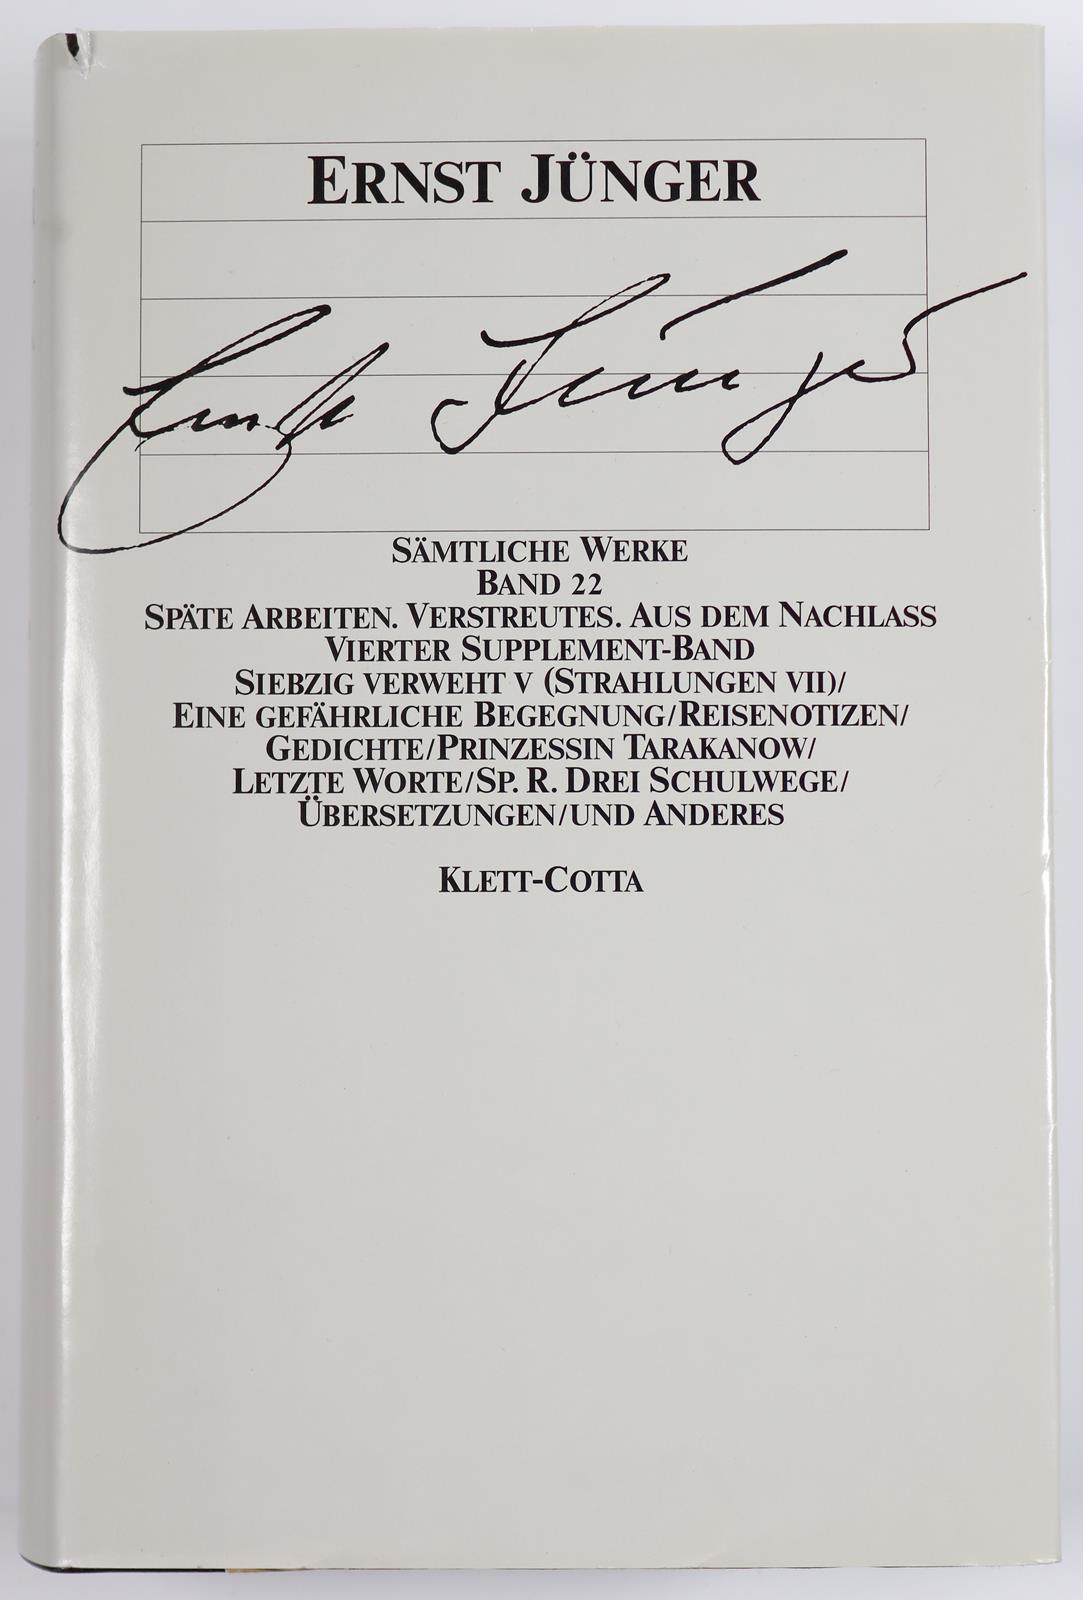 ERNST JÜNGER
Ernst Jünger
SÄMTLICHE WERKE
BAND 22
SPÄTE ARBEITEN. VERSTREUTES. AUS DEM NACHLASS
VIERTER SUPPLEMENT-BAND
SIEBZIG VERWEHT V (STRAHLUNGEN VII)/
EINE GEFÄHRLICHE BEGEGNUNG/REISENOTIZEN/
GEDICHTE/PRINZESSIN TARAKANOW/
LETZTE WORTE/SP. R. DREI SCHULWEGE/
ÜBERSETZUNGEN/UND ANDERES
KLETT-COTTA